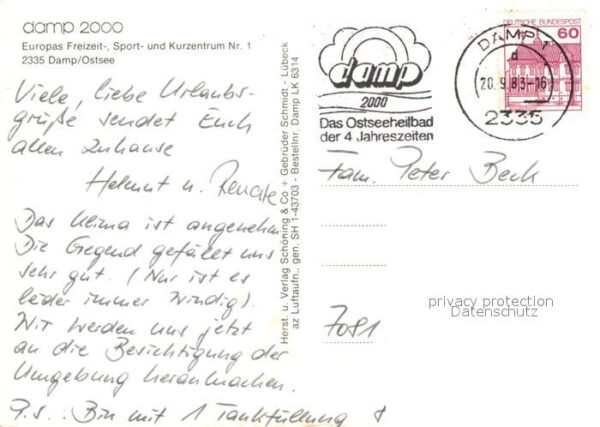 damp 2000
Europas Freizeit-, Sport- und Kurzentrum Nr. 1
2335 Damp/Ostsee
Viele, liebe Urlaubs-
grüße sendet Euch
allen zuhause
Helmut u. Renate
Das Klima ist angenehm
Die Gegend gefällt uns
sehr gut. (Nur ist es
leider immer windig).
Wir werden uns jetzt
an die Besichtigung der
Umgebung heranmachen.
P.s.: Bin mit 1 Tankfüllung
Herst. u. Verlag Schöning & Co + Gebrüder Schmidt - Lübeck
az Luftaufn., gen. SH 1-43703 - Bestellnr. Damp LK 6314
damp
2000
Das Ostseeheilbad
der 4 Jahreszeiten
DAMP 1
d
20.9.83-16
2335
DEUTSCHE BUNDESPOST
60
Fam. Peter Beck
7081
privacy protection
Datenschutz